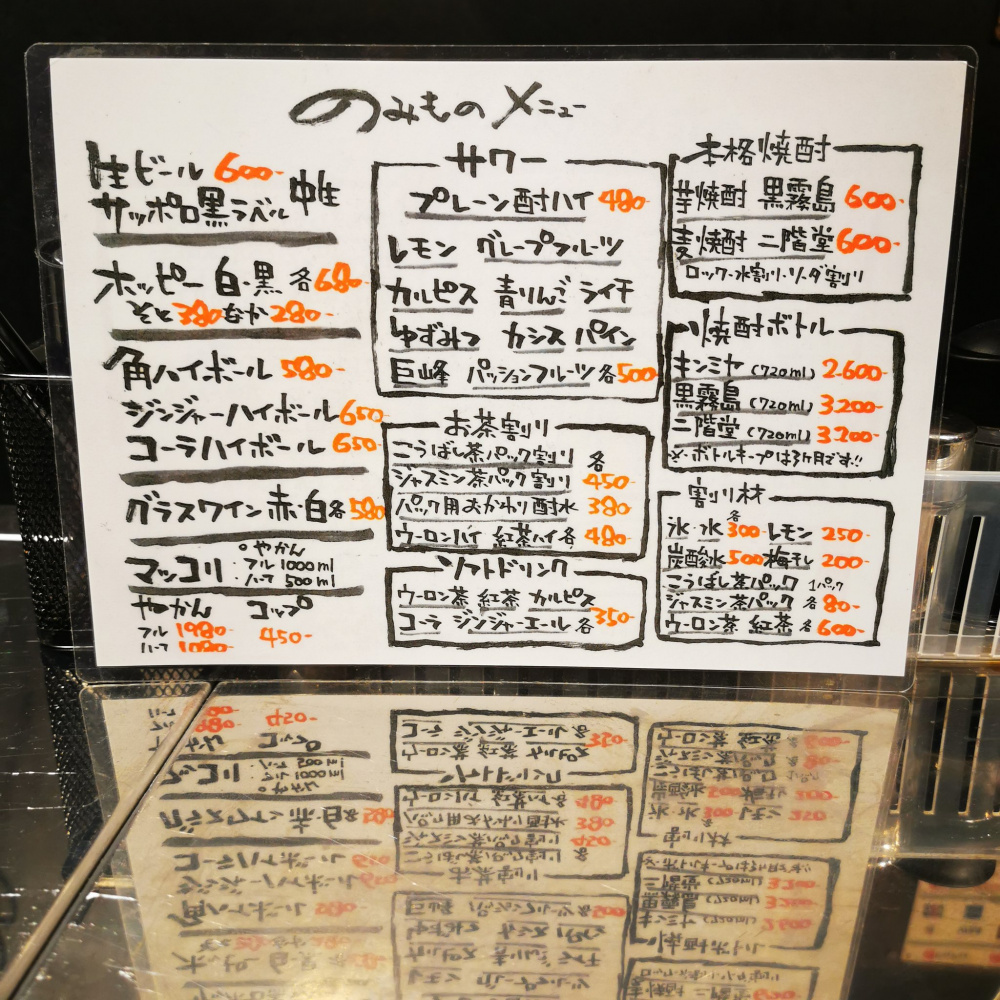 のみもの メニュー
生ビール 600-
サッポロ黒ラベル 中生
ホッピー 白・黒 各680-
そと380 なか280-
角ハイボール 580-
ジンジャーハイボール 650
コーラハイボール 650-
グラスワイン 赤・白各580
マッコリ
。やかん
・フル 1000ml
・ハーフ 500ml
やかん コップ
フル 1980- 450-
ハーフ 1080-
サワー
プレーン酎ハイ 480-
レモン グレープフルーツ
カルピス 青りんご ライチ
ゆずみつ カシス パイン
巨峰 パッションフルーツ 各500
お茶割り
こうばし茶パック割り 各
ジャスミン茶パック割り 450-
パック用おかわり酎水 380
ウーロンハイ 紅茶ハイ各 480-
ソフトドリンク
ウーロン茶 紅茶 カルピス
コーラ ジンジャーエール 各350-
本格焼酎
芋焼酎 黒霧島 600-
麦焼酎 二階堂 600-
ロック・水割り・ソーダ割り
焼酎ボトル
キンミヤ (720ml) 2.600-
黒霧島 (720ml) 3.200-
二階堂 (720ml) 3.200-
※ボトルキープは3ヶ月です!!
割り材
氷・水 各300- レモン 250
炭酸水 500 梅干し 200-
こうばし茶パック 1パック
ジャスミン茶パック 各80-
ウーロン茶 紅茶 各600-